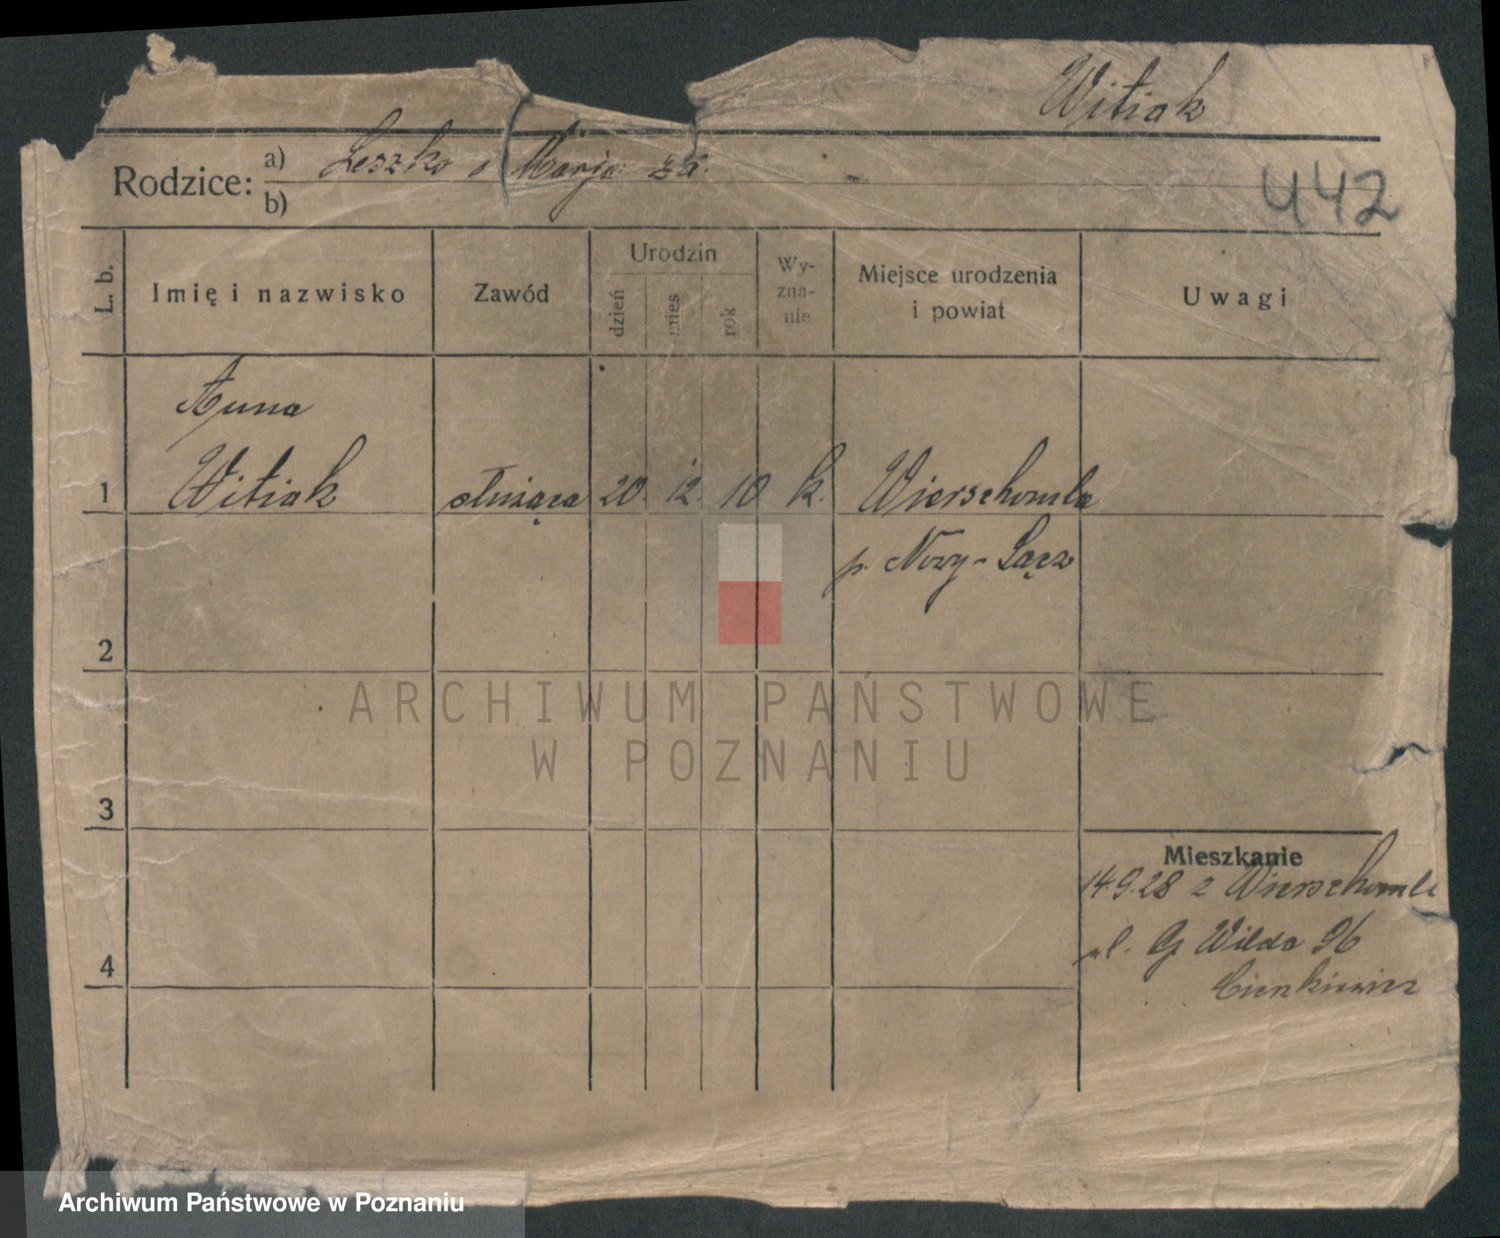 Witiak
Rodzice: a) Leszko i Marja za.
b)
442
L. b.
Imię i nazwisko
Zawód
Urodzin
dzień
mies
rok
Wy-
zna-
nie
Miejsce urodzenia
i powiat
Uwagi
Anna
1 Witiak służąca 20. 12. 10 k. Wierschomla
p. Nowy-Sącz
2
3
Mieszkanie
14.9.28 z Wierschomli
ul. G Wilda 96
Cienkiewicz
4
ARCHIWUM PAŃSTWOWE
W POZNANIU
Archiwum Państwowe w Poznaniu